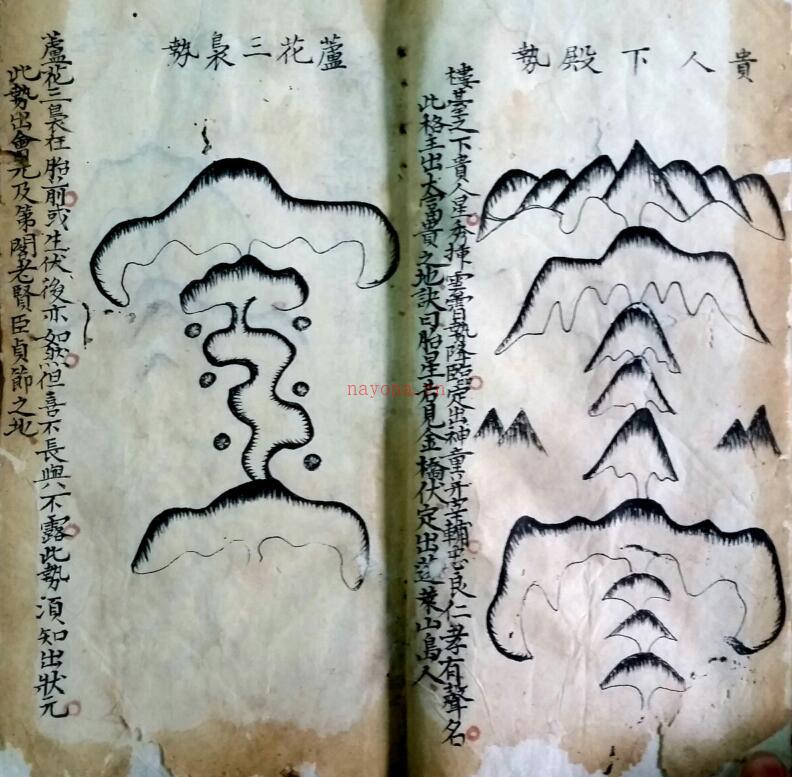 貴人下殿勢
樓臺之下貴人星秀插雲霄勢降臨定出神童并宰輔忠良仁孝有聲名
此格主出大富貴之地訣曰胎星若見金橋伏定出蓬萊山島人
蘆花三裊勢
蘆花三裊在胎前或生伏後亦如然但喜不長與不露此勢須知出狀元
此勢出會元及第閣老賢臣貞節之地
nayona.cn